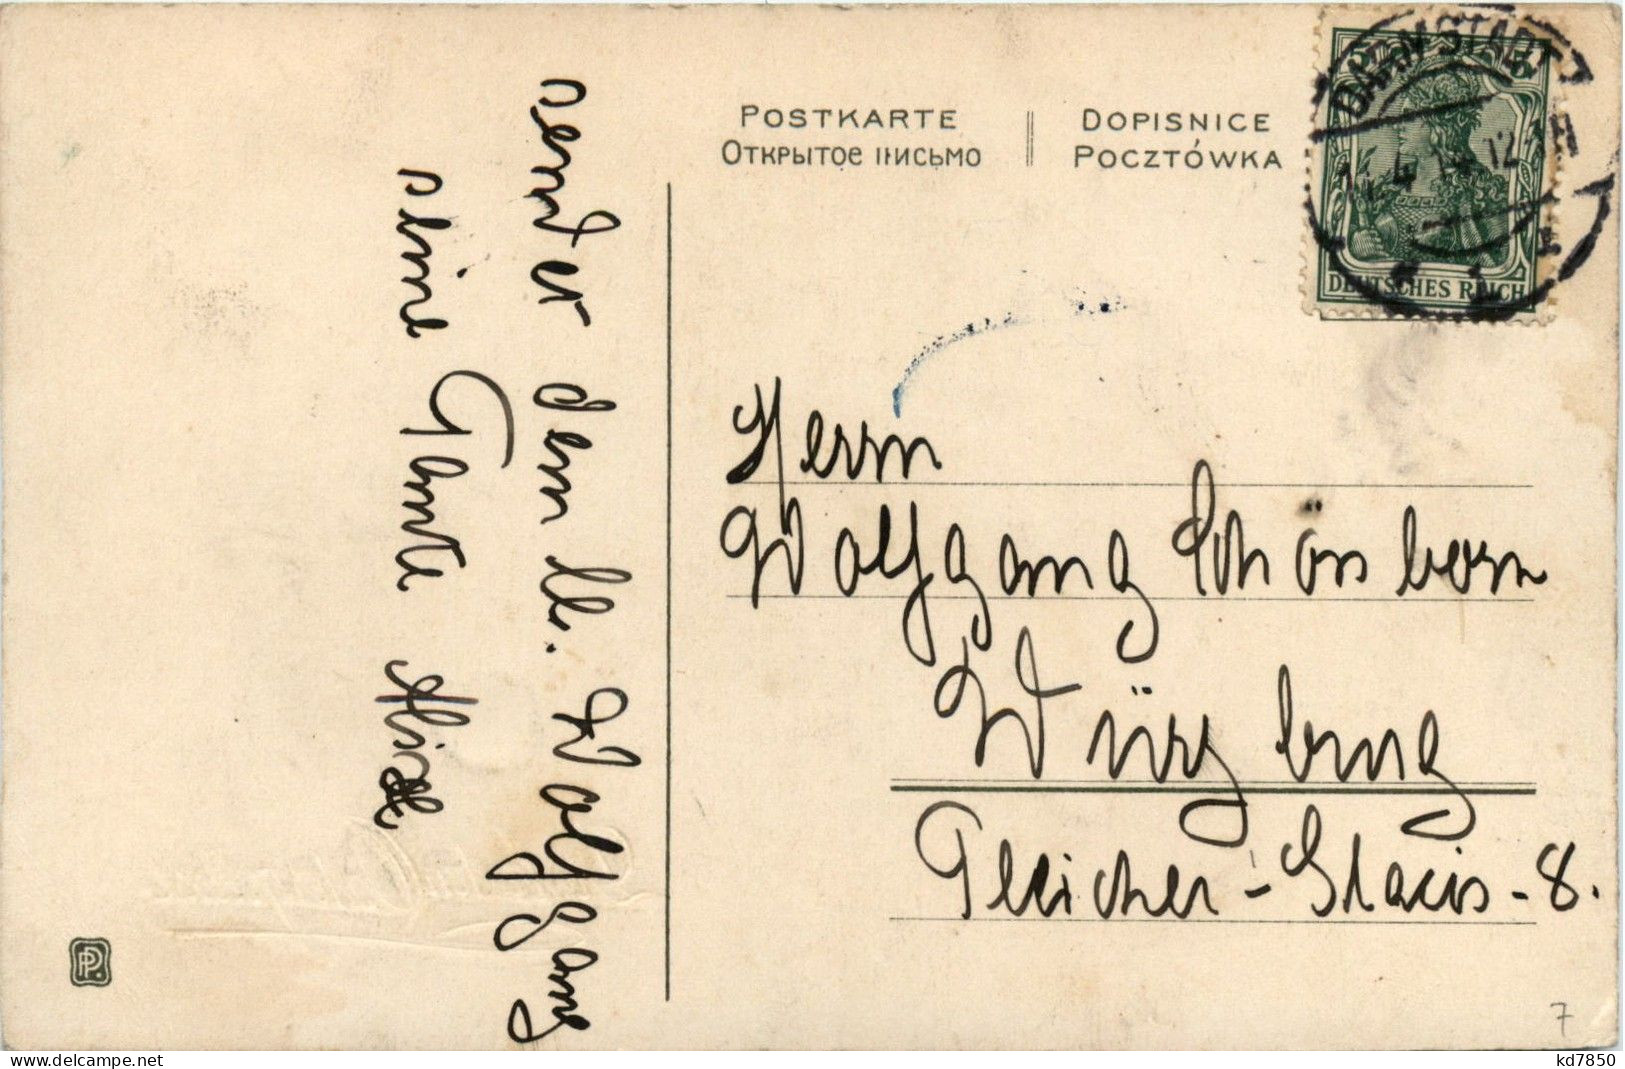 sendet dem lb. Wolfgang
deine Tante
POSTKARTE
ОТКРЫТОЕ ПИСЬМО
DOPISNICE
POCZTÓWKA
DARMSTADT
DEUTSCHES REICH
Herrn
Wolfgang Schönborn
Würzburg
Pleicher-Glacis-8.
PP.
7
kd7850
www.delcampe.net